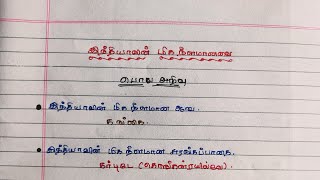 இந்தியாவின் மிக நீளமானவை
பொது அறிவு
இந்தியாவின் மிக நீளமான ஆறு.
கங்கை.
இந்தியாவின் மிக நீளமான சுரங்கப்பாதை.
கர்புடே (கொங்கன்ரயில்வே).